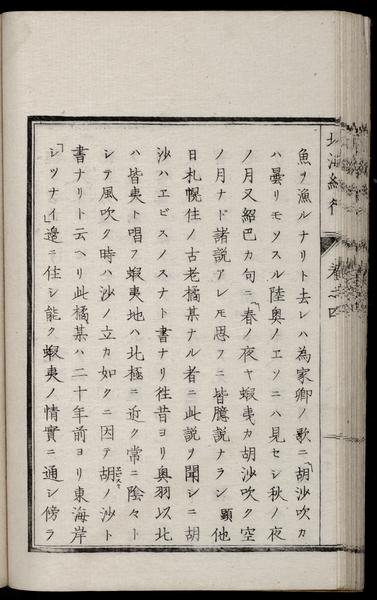 魚ヲ漁ルナリト去レハ為家卿ノ歌ニ「胡沙吹カ
ハ曇リモソスル陸奥ノエソニハ見セシ秋ノ夜
ノ月又紹巴カ句ニ「春ノ夜ヤ蝦夷カ胡沙吹ク空
ノ月ナド諸説アレモ思フニ皆臆説ナラン顕他
日札幌住ノ古老橘某ナル者ニ此説ヲ聞シニ胡
沙ハエビスノスナト書ナリ徃昔ヨリ奥羽以北
ハ皆夷ト唱フ蝦夷地ハ北極ニ近ク常ニ陰々ト
シテ風吹ク時ハ沙ノ立カ如クニ因テ胡ノ沙ト
書ナリト云ヘリ此橘某ハ二十年前ヨリ東海岸
「シツナイ」邉ニ住シ能ク蝦夷ノ情實ニ通シ傍ラ
北海紀行